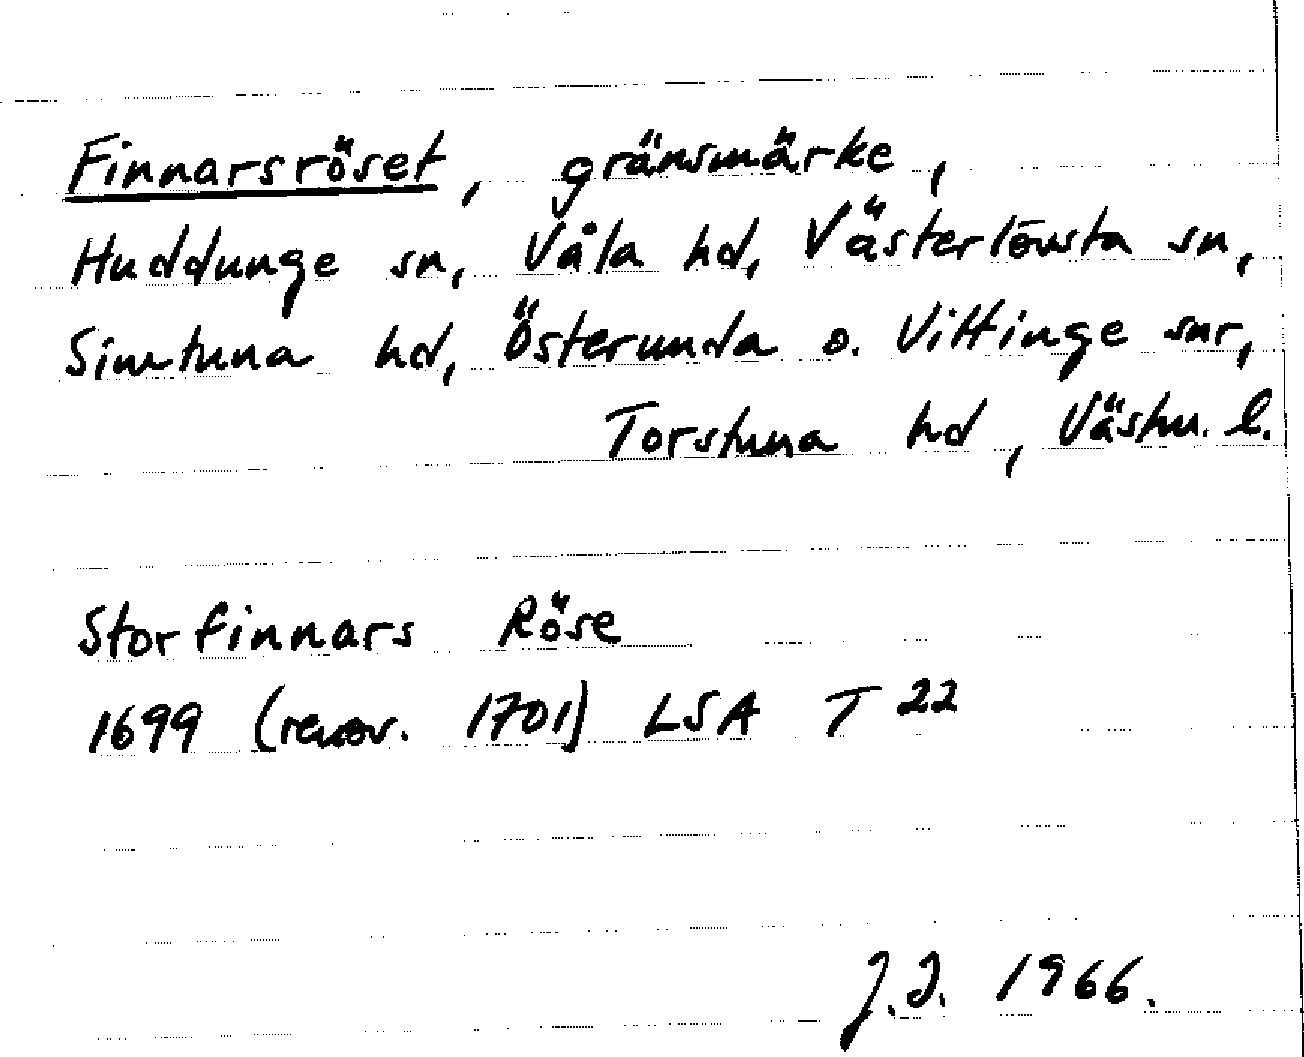 Finnarsröset, gränsmärke,
Huddunge sn, Våla hd, Västerlövsta sn,
Simtuna hd, Österunda o. Vittinge snr,
Torstuna hd, Västm. l.
Storfinnars Röse
1699 (renov. 1701) LSA T 22
J.I. 1966.